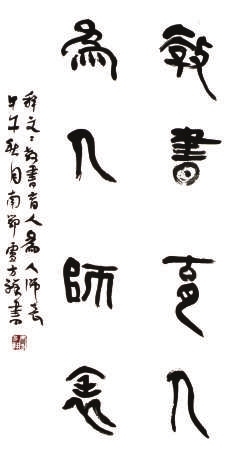 教書育人
為人師表
釋文：教書育人為人師表
午秋月南方強書